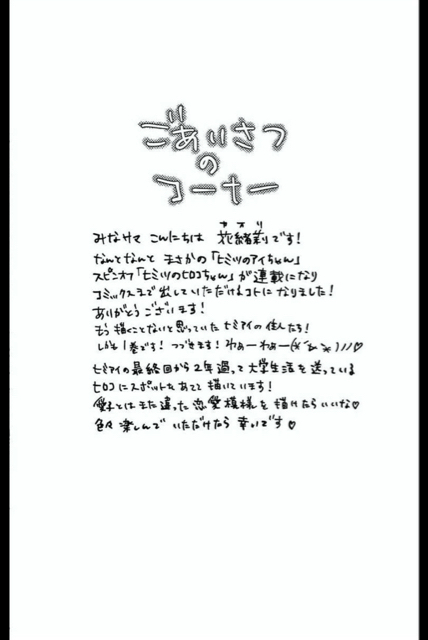 ごあいさつ
の
コーナー
カオリ
みなさま こんにちは 花緒莉です!
なんとなんと まさかの「ヒミツのアイちゃん」
スピンオフ「ヒミツのヒロコちゃん」が連載になり
コミックスまで出していただけるコトになりました!
ありがとうございます!
もう描くことないと思っていたヒミアイの住人たち!
しかも1巻です! つづきます! わぁーわぁー
ヒミアイの最終回から2年過って大学生活を送っている
ヒロコにスポットをあてて描いています!
愛子とはまた違った恋愛模様を描けたらいいな♡
色々楽しんでいただけたら幸いです♡